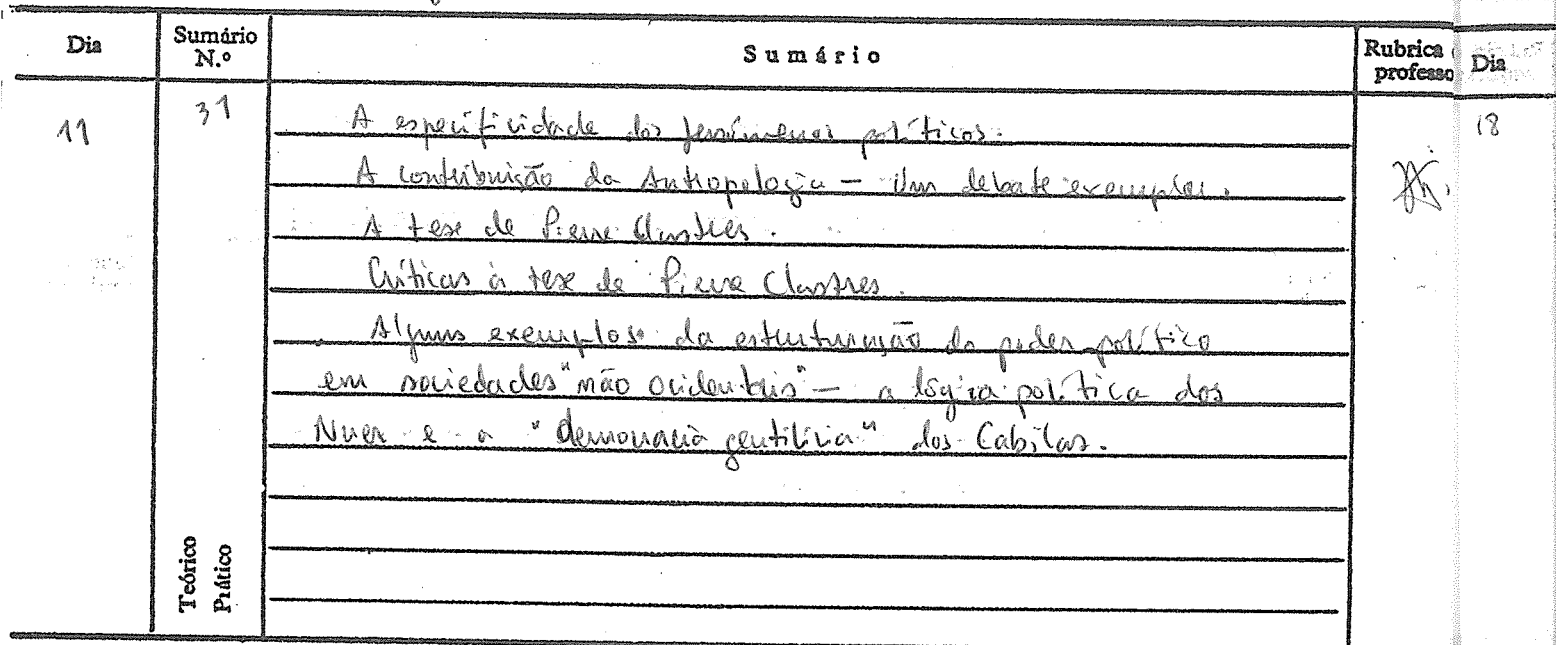 Dia Sumário N.º Sumário Rubrica professo Dia
11 31 18
A especificidade dos fenómenos políticos.
A contribuição da Antropologia — Um debate exemplar.
A tese de Pierre Clastres.
Críticas à tese de Pierre Clastres.
Alguns exemplos da estruturação do poder político
em sociedades "não ocidentais" — a lógica política dos
Nuer e a "democracia gentilícia" dos Cabilas.
Teórico
Prático